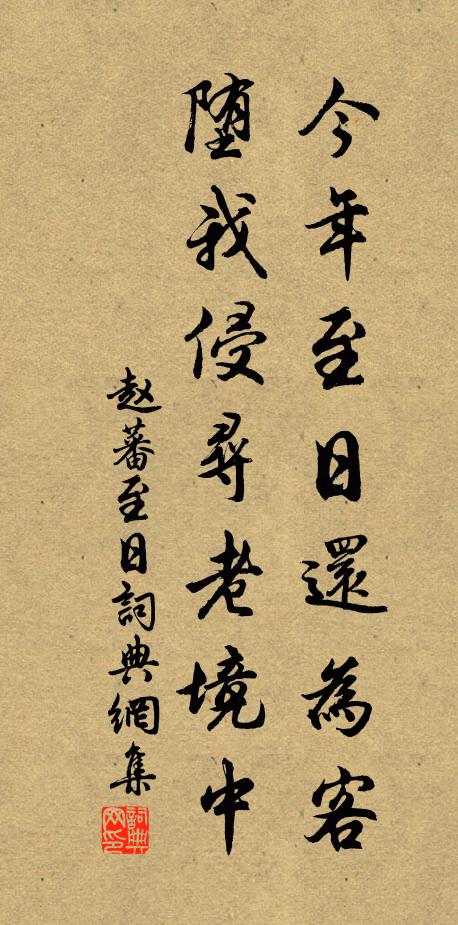 今年至日還為客
堕我侵尋老境中
赵蕃至日詞典網集
詞典网印